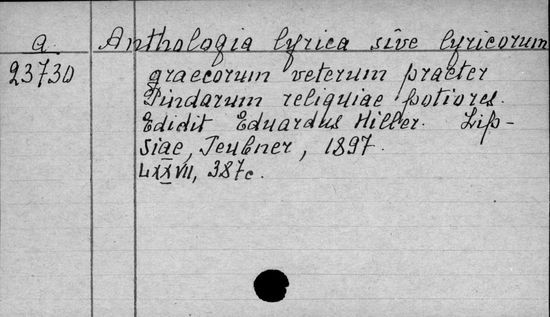 a Anthologia lyrica sive lyricorum
23730 graecorum veterum praeter
Pindarum reliquiae potiores.
Edidit Eduardus Hiller. Lip-
siae, Teubner, 1897.
LXXVII, 387c.